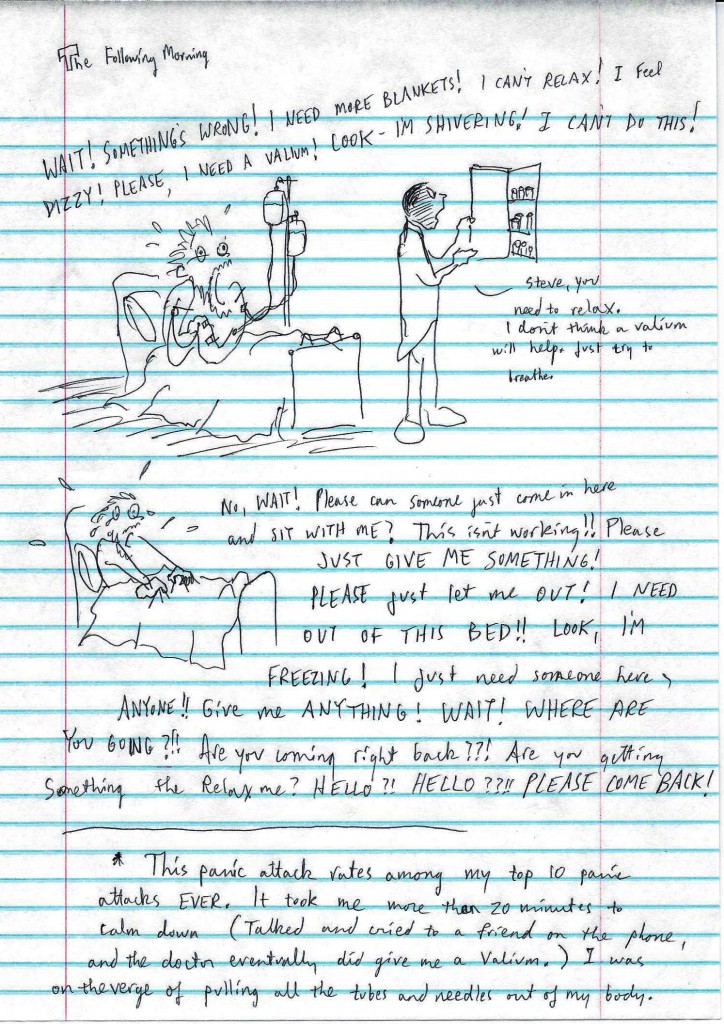 The Following Morning
WAIT! SOMETHING'S WRONG! I NEED MORE BLANKETS! I CAN'T RELAX! I Feel
DIZZY! PLEASE, I NEED A VALIUM! LOOK - I'M SHIVERING! I CAN'T DO THIS!
Steve, you
need to relax.
I don't think a valium
will help. Just try to
breathe.
No, WAIT! Please can someone just come in here
and SIT WITH ME? This isn't working!! Please
JUST GIVE ME SOMETHING!
PLEASE just let me OUT! I NEED
OUT OF THIS BED!! LOOK, I'M
FREEZING! I just need someone here,
ANYONE!! Give me ANYTHING! WAIT! WHERE ARE
YOU GOING?!! Are you coming right back??! Are you getting
Something the Relax me? HELLO?! HELLO??!! PLEASE COME BACK!
* This panic attack rates among my top 10 panic
attacks EVER. It took me more than 20 minutes to
calm down (Talked and cried to a friend on the phone,
and the doctor eventually did give me a Valium.) I was
on the verge of pulling all the tubes and needles out of my body.